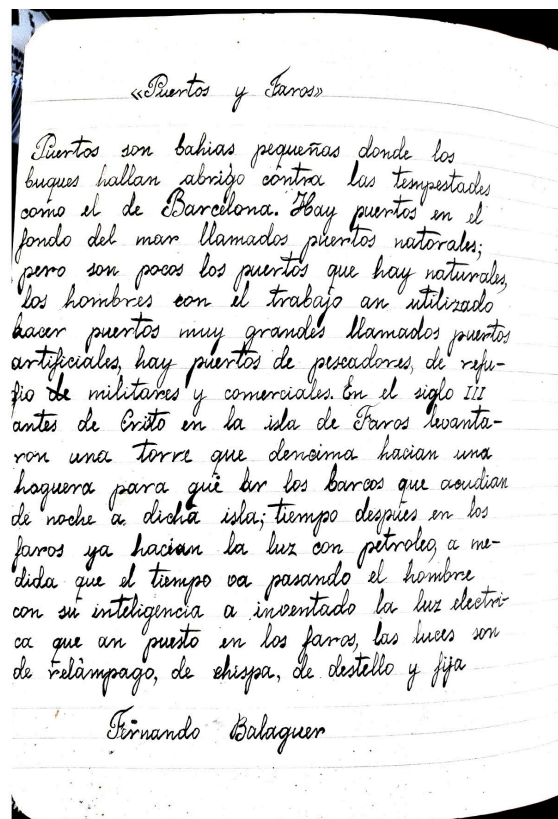 «Puertos y Faros»
Puertos son bahias pequeñas donde los
buques hallan abrigo contra las tempestades
como el de Barcelona. Hay puertos en el
fondo del mar llamados puertos natorales;
pero son pocos los puertos que hay naturales,
los hombres con el trabajo an utilizado
hacer puertos muy grandes llamados puertos
artificiales, hay puertos de pescadores, de refu-
fio de militares y comerciales. En el siglo III
antes de Cristo en la isla de Faros levanta-
ron una torre que dencima hacian una
hoguera para que los barcos que acudian
de noche a dicha isla; tiempo despues en los
faros ya hacian la luz con petroleo, a me-
dida que el tiempo va pasando el hombre
con su inteligencia a inventado la luz electri-
ca que an puesto en los faros, las luces son
de relàmpago, de chispa, de destello y fija
Fernando Balaguer